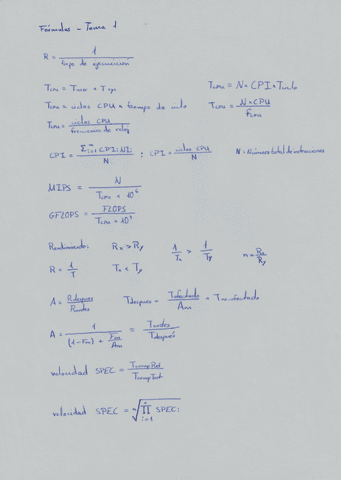 Fórmulas - Tema 1
R = 1 / tiempo de ejecución
Tcpu = N × CPI × Tciclo
Tcpu = ciclos CPU × tiempo de ciclo
Tcpu = ciclos CPU / frecuencia de reloj
CPI = Σ CPIi NIi / N ; CPI = ciclos CPU / N N = Número total de instrucciones
MIPS = N / Tcpu × 10^6
GFLOPS = FLOPS / Tcpu × 10^9
Rendimiento: Rx > Ry 1/Tx > 1/Ty n = Rx/Ry
R = 1/T Tx < Ty
A = Rdespues / Rantes Tdespues = Tafectado / Am + Tno afectado
A = 1 / (1 - Fm) + Fm/Am = Tantes / Tdespués
velocidad SPEC =
velocidad SPEC = n√∏ i=1 SPECi